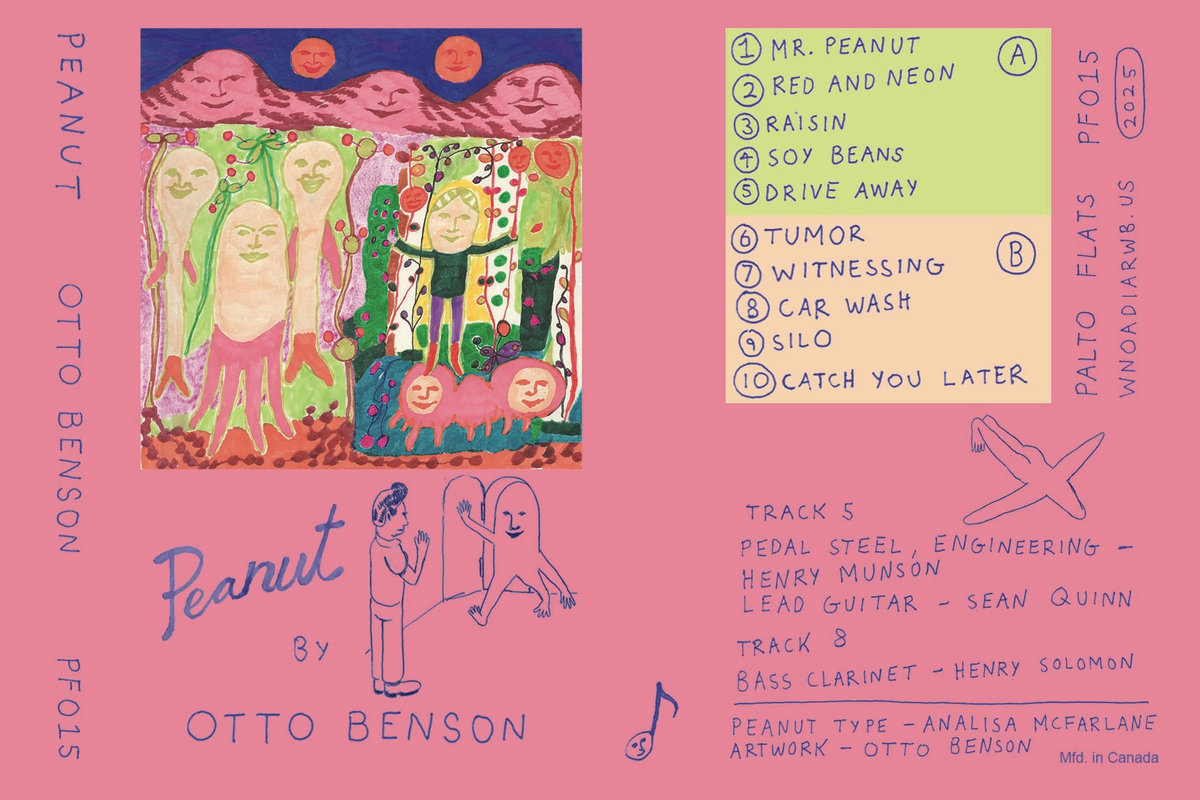 PEANUT OTTO BENSON PFO15
Peanut
BY
OTTO BENSON
A
1 MR. PEANUT
2 RED AND NEON
3 RAISIN
4 SOY BEANS
5 DRIVE AWAY
B
6 TUMOR
7 WITNESSING
8 CAR WASH
9 SILO
10 CATCH YOU LATER
PALTO FLATS PFO15 2025
WNOADIARWB.US
TRACK 5
PEDAL STEEL, ENGINEERING –
HENRY MUNSON
LEAD GUITAR – SEAN QUINN
TRACK 8
BASS CLARINET – HENRY SOLOMON
PEANUT TYPE – ANALISA MCFARLANE
ARTWORK – OTTO BENSON
Mfd. in Canada